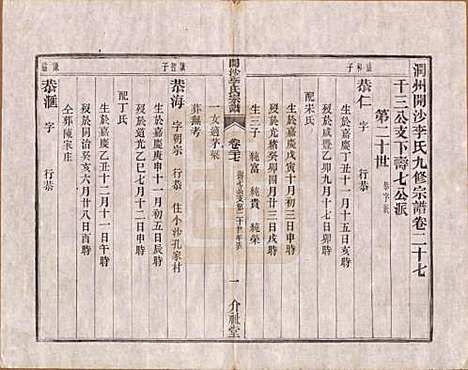 潤州開沙李氏九修宗譜卷二十七
千三公支下壽七公派 恭字派
第二十世
恭仁 字 行恭
生於嘉慶丁丑十一月十五日亥時
歿於咸豐乙卯九月十三日辰時
配宋氏
生於嘉慶戊寅十一月初四日辰時
歿於光緒癸卯四月廿三日戌時
生三子 純富 純貴 純榮
一女適茅寨
開沙李氏宗譜
卷二十七
一 介祉堂
葬無考
恭海 字朝宗 行恭 住小沙孔家村
生於嘉慶庚申十一月初五日辰時
歿於道光乙巳七月十二日申時
配丁氏
生於嘉慶乙丑十二月十一日午時
歿於同治癸亥六月廿八日酉時
仝葬陳宋庄
恭滙 字 行恭